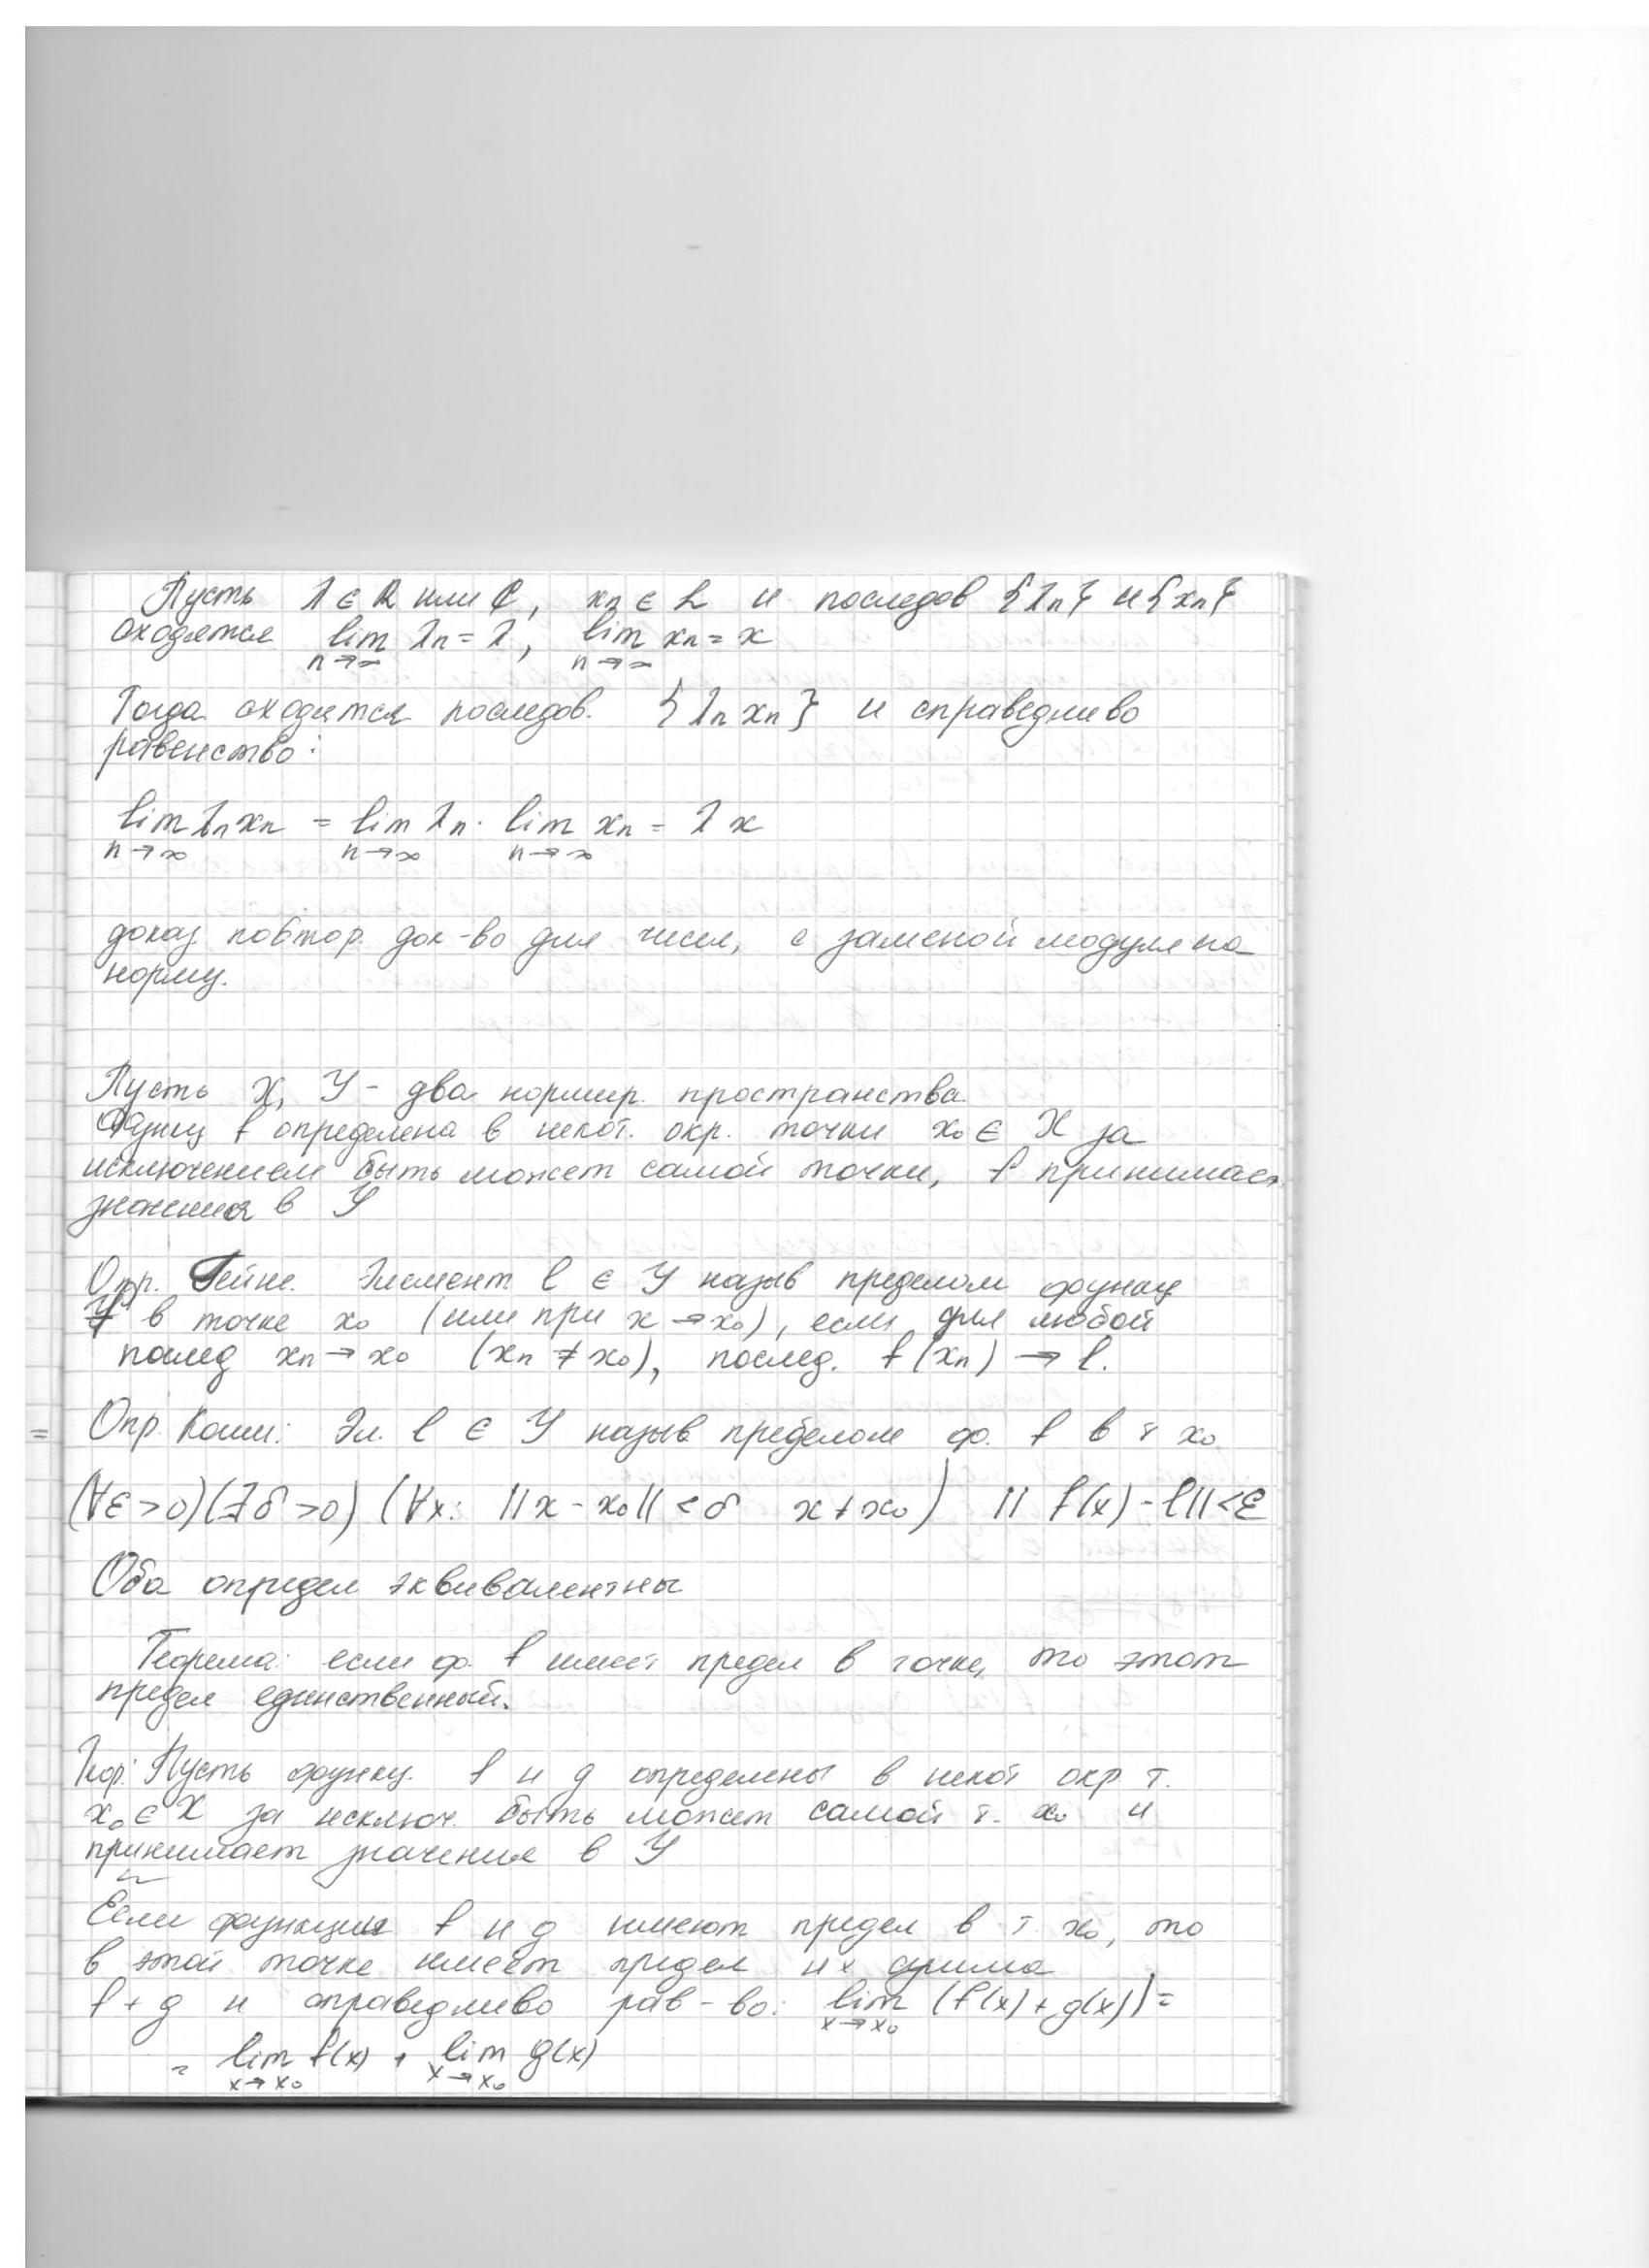 Пусть λ ∈ R или C, xn ∈ L и последов {λn} и {xn}
сходятся lim n→∞ λn = λ, lim n→∞ xn = x
Тогда сходится последов. {λn xn} и справедливо
равенство:
lim n→∞ λn xn = lim n→∞ λn · lim n→∞ xn = λ x
доказ. повтор. док-во для чисел, с заменой модуля на
норму.
Пусть X, Y - два нормир. пространства
Функц f определена в некот. окр. точки x₀ ∈ X за
исключением быть может самой точки, f принимает
значения в Y
Опр. Гейне. Элемент l ∈ Y назыв пределом функц
f в точке x₀ (или при x → x₀), если для любой
послед xn → x₀ (xn ≠ x₀), послед. f(xn) → l.
Опр. Коши: Эл. l ∈ Y назыв пределом ф. f в т x₀
(∀ε > 0)(∃δ > 0) (∀x: ||x - x₀|| < δ x ≠ x₀) || f(x) - l|| < ε
Оба определ эквивалентны
Теорема: если ф. f имеет предел в точке, то этот
предел единственный.
Теор: Пусть функц. f и g определены в некот окр т.
x₀ ∈ X за исключ. быть может самой т. x₀ и
принимает значение в Y
Если функции f и g имеют предел в т. x₀, то
в этой точке имеет предел их сумма
f + g и справедливо рав-во: lim x→x₀ (f(x) + g(x)) =
= lim x→x₀ f(x) + lim x→x₀ g(x)